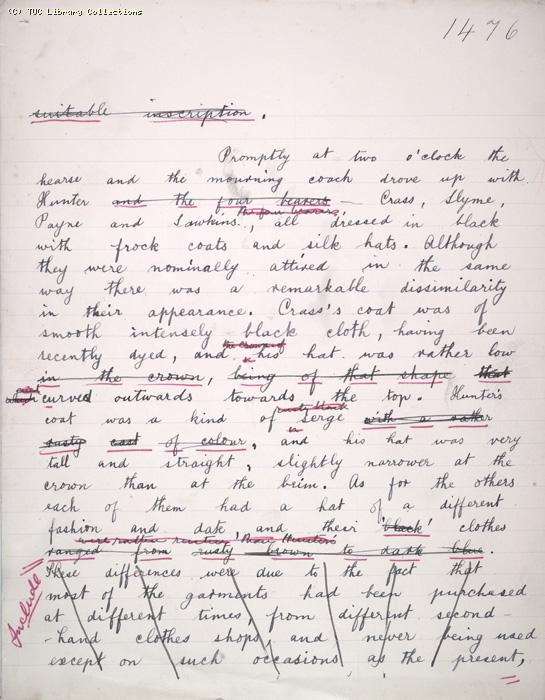 (C) TUC Library Collections
1476
suitable inscription.
Promptly at two o'clock the
hearse and the mourning coach drove up with
Hunter and the four bearers – Crass, Slyme,
the four bearers,
Payne and Sawkins, all dressed in black
with frock coats and silk hats. Although
they were nominally attired in the same
way there was a remarkable dissimilarity
in their appearance. Crass's coat was of
smooth intensely black cloth, having been
recently dyed, and his hat was rather low
the crown of
in the crown, being of that shape that
curved outwards towards the top. Hunter's
rusty black
coat was a kind of serge with a rather
rusty cast of colour, and his hat was very
tall and straight, slightly narrower at the
crown than at the brim. As for the others
each of them had a hat of a different
fashion and date and their 'black' clothes
were rather rustier than Hunter's
ranged from rusty brown to dark blue.
These differences were due to the fact that
most of the garments had been purchased
at different times, from different second-
-hand clothes shops, and never being used
except on such occasions as the present,
Include